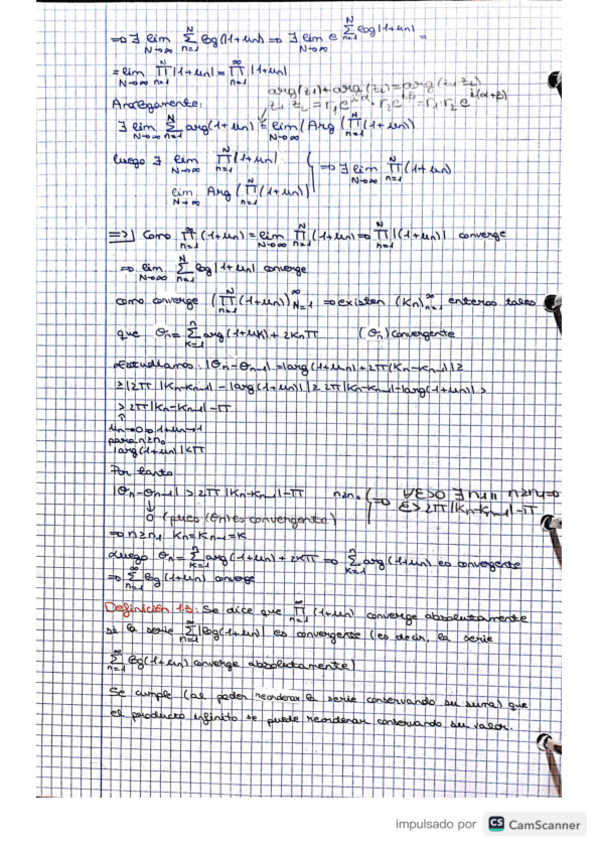 ⇒ ∃ lim_{N→∞} Σ_{n=1}^{N} log|1+un| ⇒ ∃ lim_{N→∞} e^{Σ_{n=1}^{N} log|1+un|} =
= lim_{N→∞} Π_{n=1}^{N} |1+un| = Π_{n=1}^{∞} |1+un|
arg(z₁)+arg(z₂)=arg(z₁·z₂)
Análogamente:
z₁·z₂ = r₁e^{iα}·r₂e^{iβ} = r₁·r₂e^{i(α+β)}
∃ lim_{N→∞} Σ_{n=1}^{N} arg(1+un) = lim_{N→∞} (Arg(Π_{n=1}^{N} (1+un))
Luego ∃ lim_{N→∞} Π_{n=1}^{N} |1+un|
⇒ ∃ lim_{N→∞} Π_{n=1}^{N} (1+un)
lim_{N→∞} Arg(Π_{n=1}^{N} (1+un))
⇒] Como Π_{n=1}^{∞} (1+un) = lim_{N→∞} Π_{n=1}^{N} (1+un) ⇒ Π_{n=1}^{∞} |(1+un)| converge
⇒ lim_{N→∞} Σ_{n=1}^{N} log|1+un| converge
como converge (Π_{n=1}^{N} (1+un))_{N=1}^{∞} ⇒ existen (Kn)_{n=1}^{∞} enteros tales
que θn = Σ_{k=1}^{n} arg(1+uk) + 2knπ (θn) convergente
Estudiamos: |θn-θn-1| = |arg(1+un)+2π(kn-kn-1)| ≥
≥ |2π|kn-kn-1| - |arg(1+un)|| ≥ 2π|kn-kn-1| - |arg(1+un)| >
> 2π|kn-kn-1| - π
↑
un→0 ⇒ 1+un→1
para n≥n₀
|arg(1+un)|<π
Por tanto
|θn-θn-1| > 2π|kn-kn-1| - π n≥n₀ ⇒ ∀ε>0 ∃n₁ || n≥n₁ ⇒
ε > 2π|kn-kn-1| - π
↓
0 (pues (θn) es convergente)
⇒ n≥n₁ kn=kn-1=k
Luego θn = Σ_{k=1}^{n} arg(1+un) + 2kπ ⇒ Σ_{k=1}^{n} arg(1+un) es convergente
⇒ Σ_{n=1}^{∞} log(1+un) converge
Definición 1.3: Se dice que Π_{n=1}^{∞} (1+un) converge absolutamente
si la serie Σ_{n=1}^{∞} |log(1+un)| es convergente (es decir, la serie
Σ_{n=1}^{∞} log(1+un) converge absolutamente)
Se cumple (al poder reordenar la serie conservando su suma) que
el producto infinito se puede reordenar conservando su valor.
impulsado por CS CamScanner